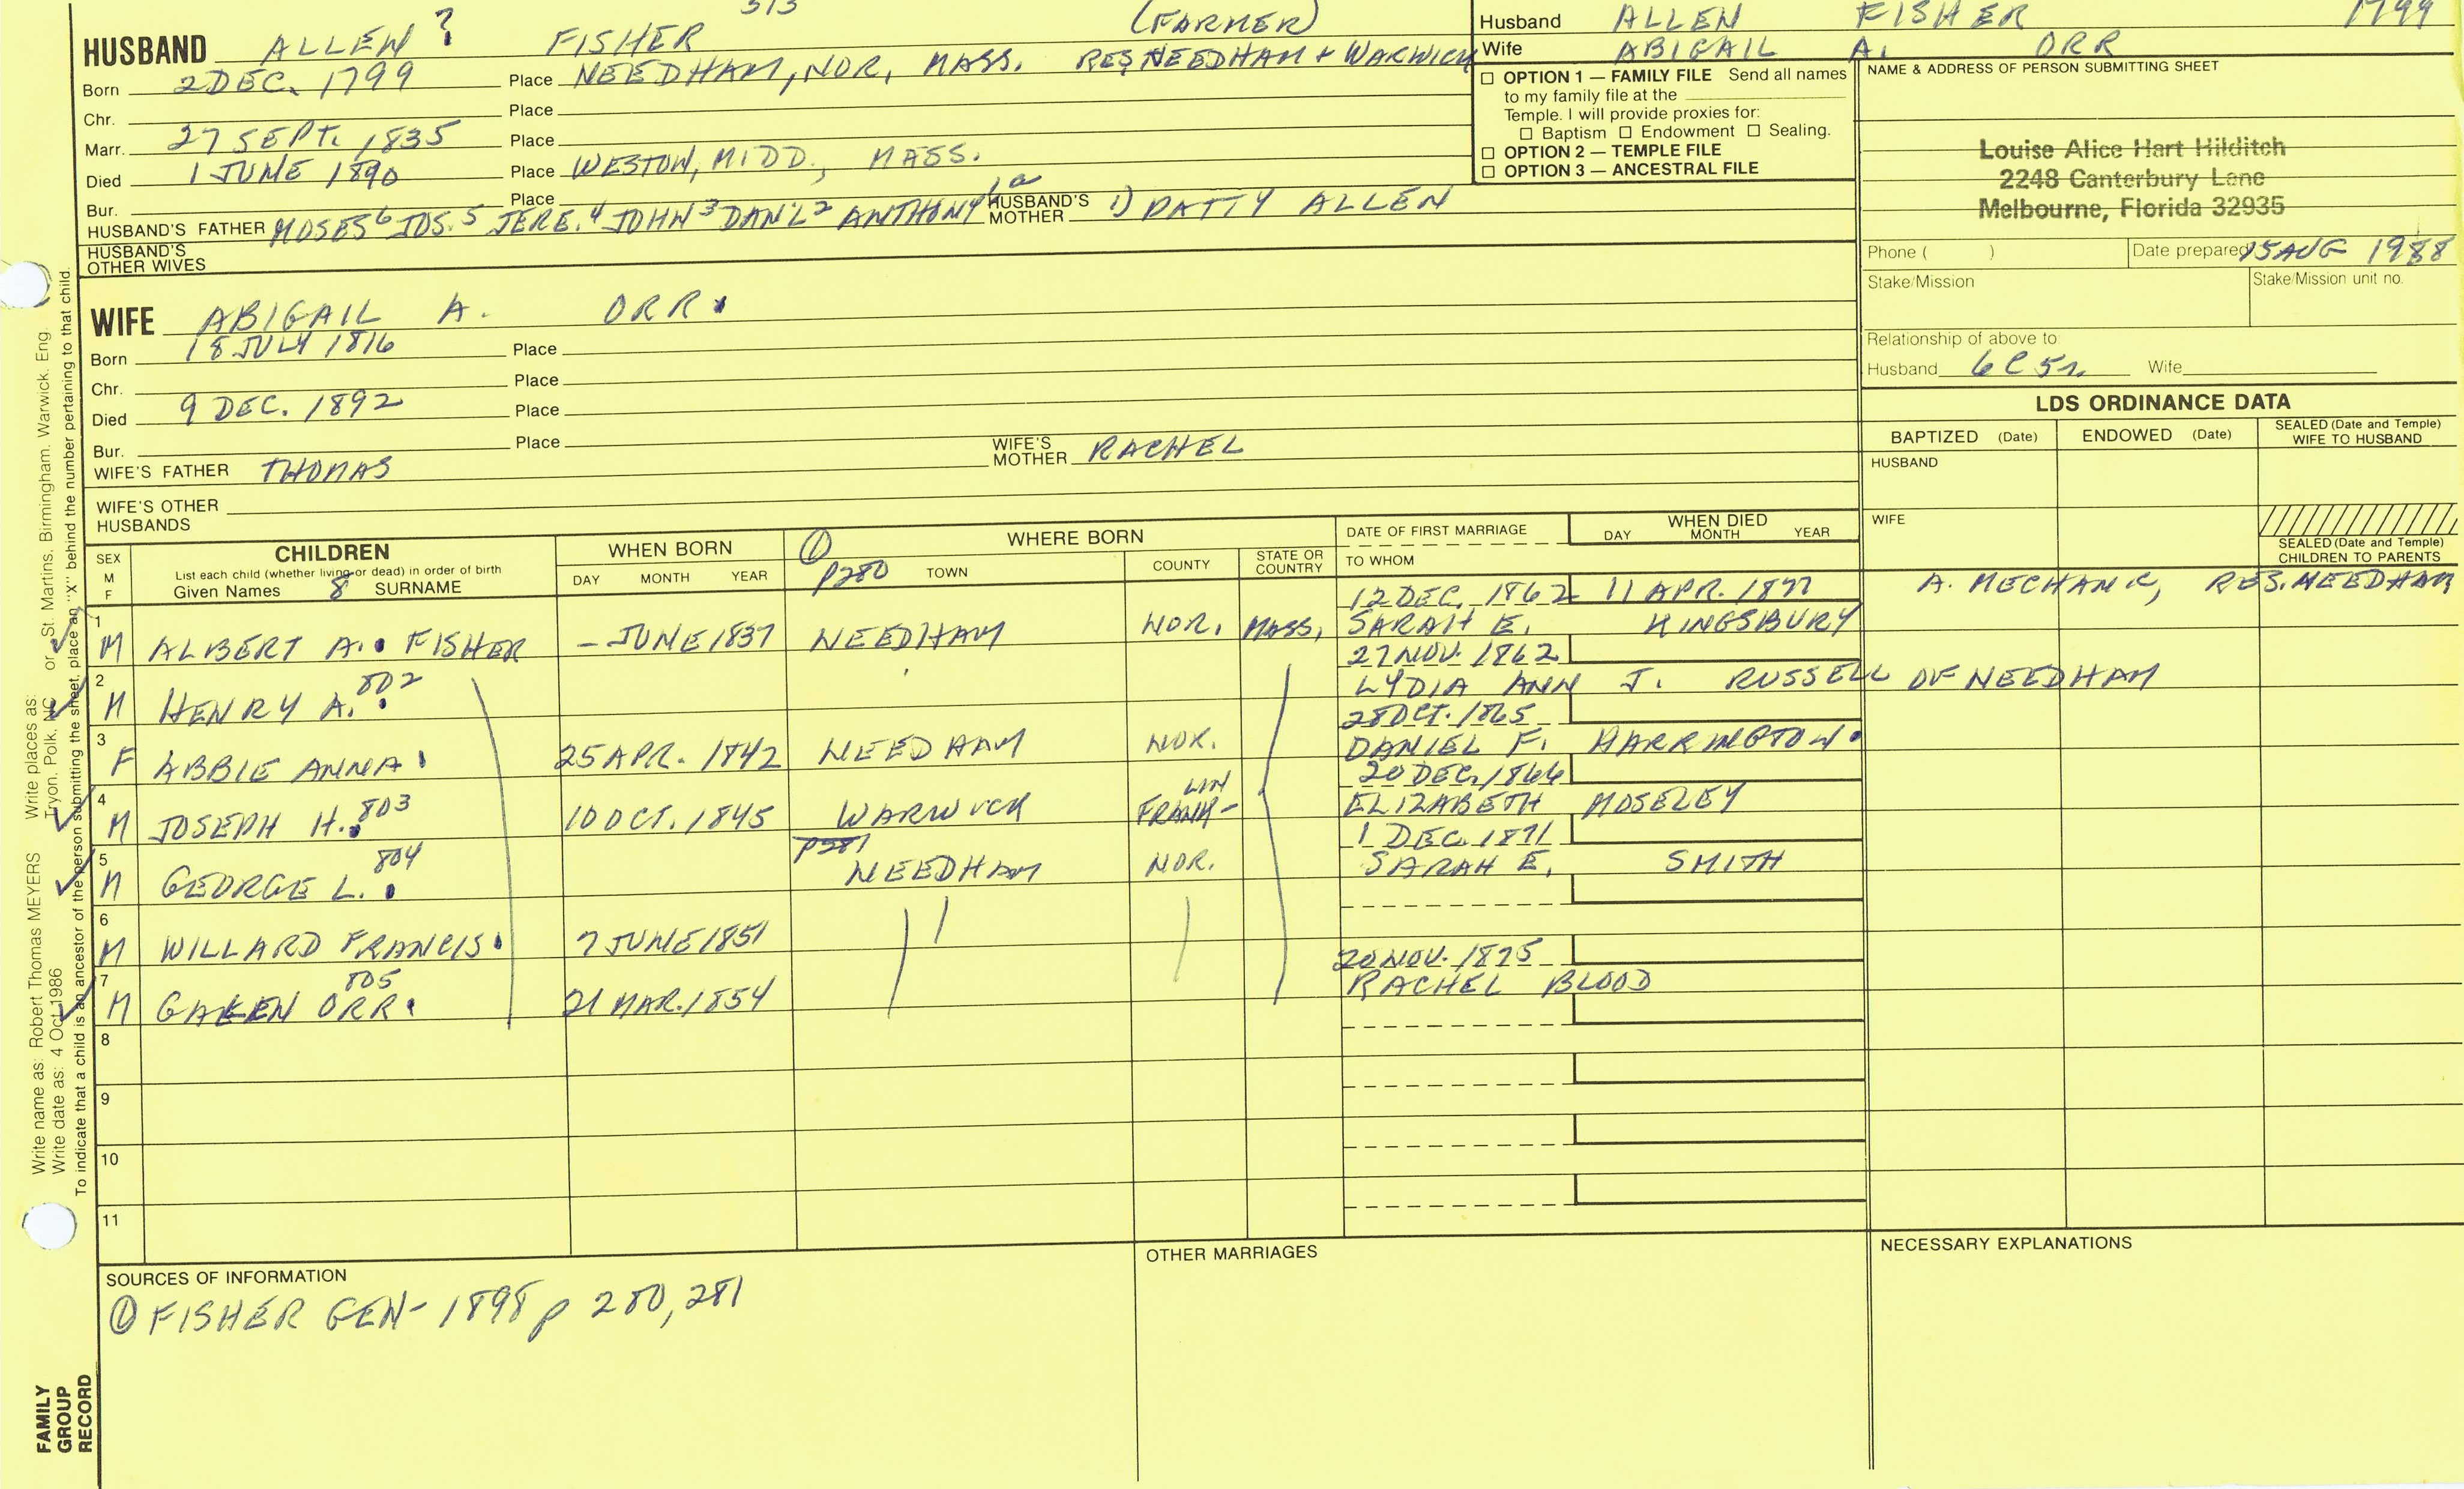 513 (FARMER)
HUSBAND ALLEN 7 FISHER
RES NEEDHAM + WARWICK
Born 2 DEC. 1799 Place NEEDHAM, NOR, MASS.
Chr. Place
Marr. 27 SEPT. 1835 Place
Died 1 JUNE 1890 Place WESTON, MIDD., MASS.
Bur. Place
HUSBAND'S FATHER MOSES 6 JOS. 5 JERE. 4 JOHN 3 DAN'L 2 ANTHONY 1a HUSBAND'S MOTHER 1) PATTY ALLEN
HUSBAND'S OTHER WIVES
Husband ALLEN FISHER 1799
Wife ABIGAIL A. ORR
☐ OPTION 1 — FAMILY FILE Send all names
to my family file at the
Temple. I will provide proxies for:
☐ Baptism ☐ Endowment ☐ Sealing.
☐ OPTION 2 — TEMPLE FILE
☐ OPTION 3 — ANCESTRAL FILE
NAME & ADDRESS OF PERSON SUBMITTING SHEET
Louise Alice Hart Hilditch
2248 Canterbury Lane
Melbourne, Florida 32935
Phone ( ) Date prepared 15 AUG 1988
Stake/Mission Stake/Mission unit no.
Relationship of above to:
Husband 6C5r. Wife
WIFE ABIGAIL A. ORR.
Born 18 JULY 1816 Place
Chr. Place
Died 9 DEC. 1892 Place
Bur. Place
WIFE'S FATHER THOMAS WIFE'S MOTHER RACHEL
WIFE'S OTHER HUSBANDS
LDS ORDINANCE DATA
BAPTIZED (Date) ENDOWED (Date) SEALED (Date and Temple) WIFE TO HUSBAND
HUSBAND
WIFE
SEALED (Date and Temple) CHILDREN TO PARENTS
SEX M F
CHILDREN
List each child (whether living or dead) in order of birth
Given Names 8 SURNAME
WHEN BORN
DAY MONTH YEAR
① p280
WHERE BORN
TOWN COUNTY STATE OR COUNTRY
DATE OF FIRST MARRIAGE
TO WHOM
WHEN DIED
DAY MONTH YEAR
12 DEC. 1862 11 APR. 1877 A. MECHANIC, RES. NEEDHAM
1 M ALBERT A. FISHER - JUNE 1837 NEEDHAM NOR. MASS. SARAH E. KINGSBURY
27 NOV. 1862
2 M HENRY A. 802 LYDIA ANN J. RUSSELL OF NEEDHAM
28 OCT. 1865
3 F ABBIE ANNA 25 APR. 1842 NEEDHAM NOR. DANIEL F. HARRINGTON
20 DEC. 1866
4 M JOSEPH H. 803 10 OCT. 1845 WARWICK FRANK-LIN ELIZABETH MOSELEY
p281 1 DEC. 1871
5 M GEORGE L. 804 NEEDHAM NOR. SARAH E. SMITH
6 M WILLARD FRANCIS 7 JUNE 1851
20 NOV. 1875
7 M GALEN ORR 805 21 MAR. 1854 RACHEL BLOOD
8
9
10
11
SOURCES OF INFORMATION
① FISHER GEN- 1898 p 280, 281
OTHER MARRIAGES
NECESSARY EXPLANATIONS
Write name as: Robert Thomas MEYERS Write places as:
Write date as: 4 Oct 1986 Tryon. Polk. NC or St. Martins. Birmingham. Warwick. Eng.
To indicate that a child is an ancestor of the person submitting the sheet, place an "X" behind the number pertaining to that child.
FAMILY
GROUP
RECORD